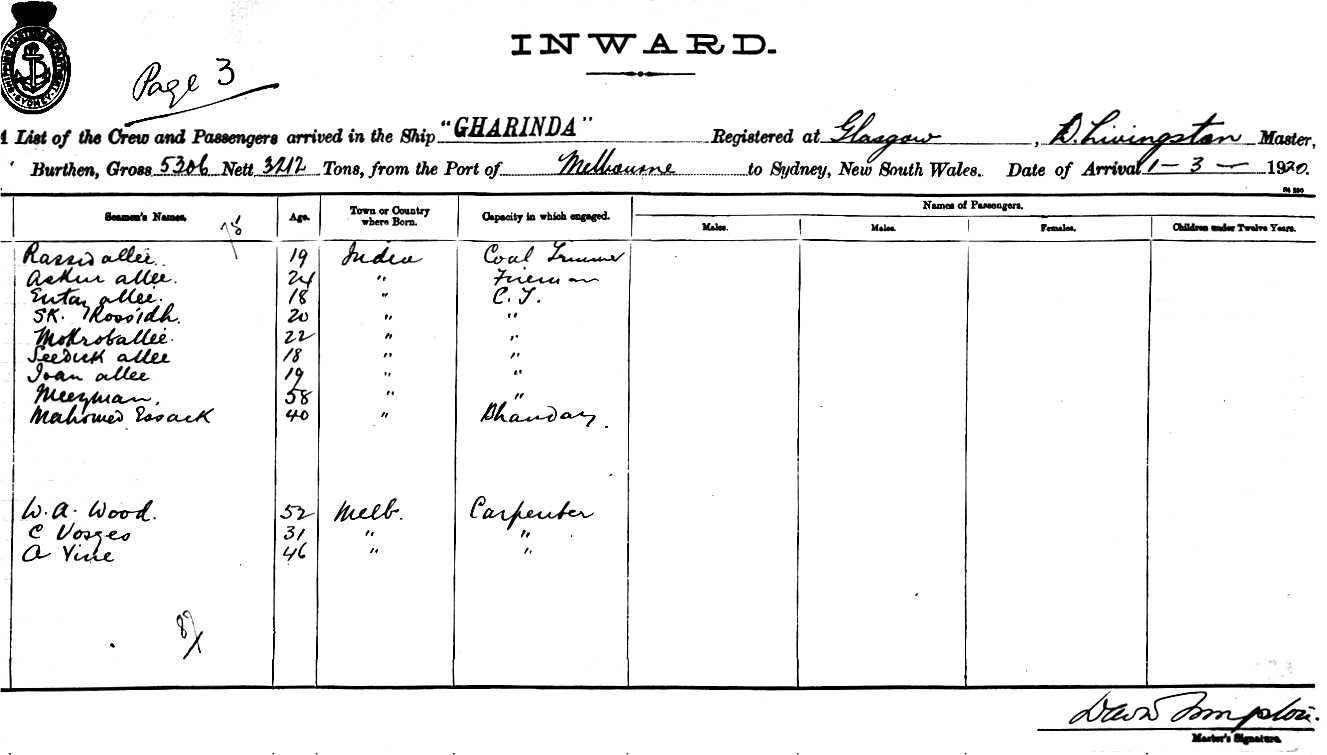 INWARD.
Page 3
SHIPPING MASTERS DEPARTMENT SYDNEY
A List of the Crew and Passengers arrived in the Ship "GHARINDA" Registered at Glasgow, D. Livingston Master,
Burthen, Gross 5306 Nett 3212 Tons, from the Port of Melbourne to Sydney, New South Wales. Date of Arrival 1-3-1920.
Seamen's Names. Age. Town or Country where Born. Capacity in which engaged. Names of Passengers.
Males. Males. Females. Children under Twelve Years.
78
Rassid allee. 19 India Coal Trimmer
Askur allee. 24 " Fireman
Entaz allee. 18 " C. T.
SK. Rossidh. 20 " "
Mokroballee. 22 " "
Seeduk allee 18 " "
Ioan allee 19 " "
Meezman, 58 " "
Mahomed Essack 40 " Bhandary
W. A. Wood. 52 Melb. Carpenter
C Vosges 31 " "
A Vine 46 " "
Master's Signature.